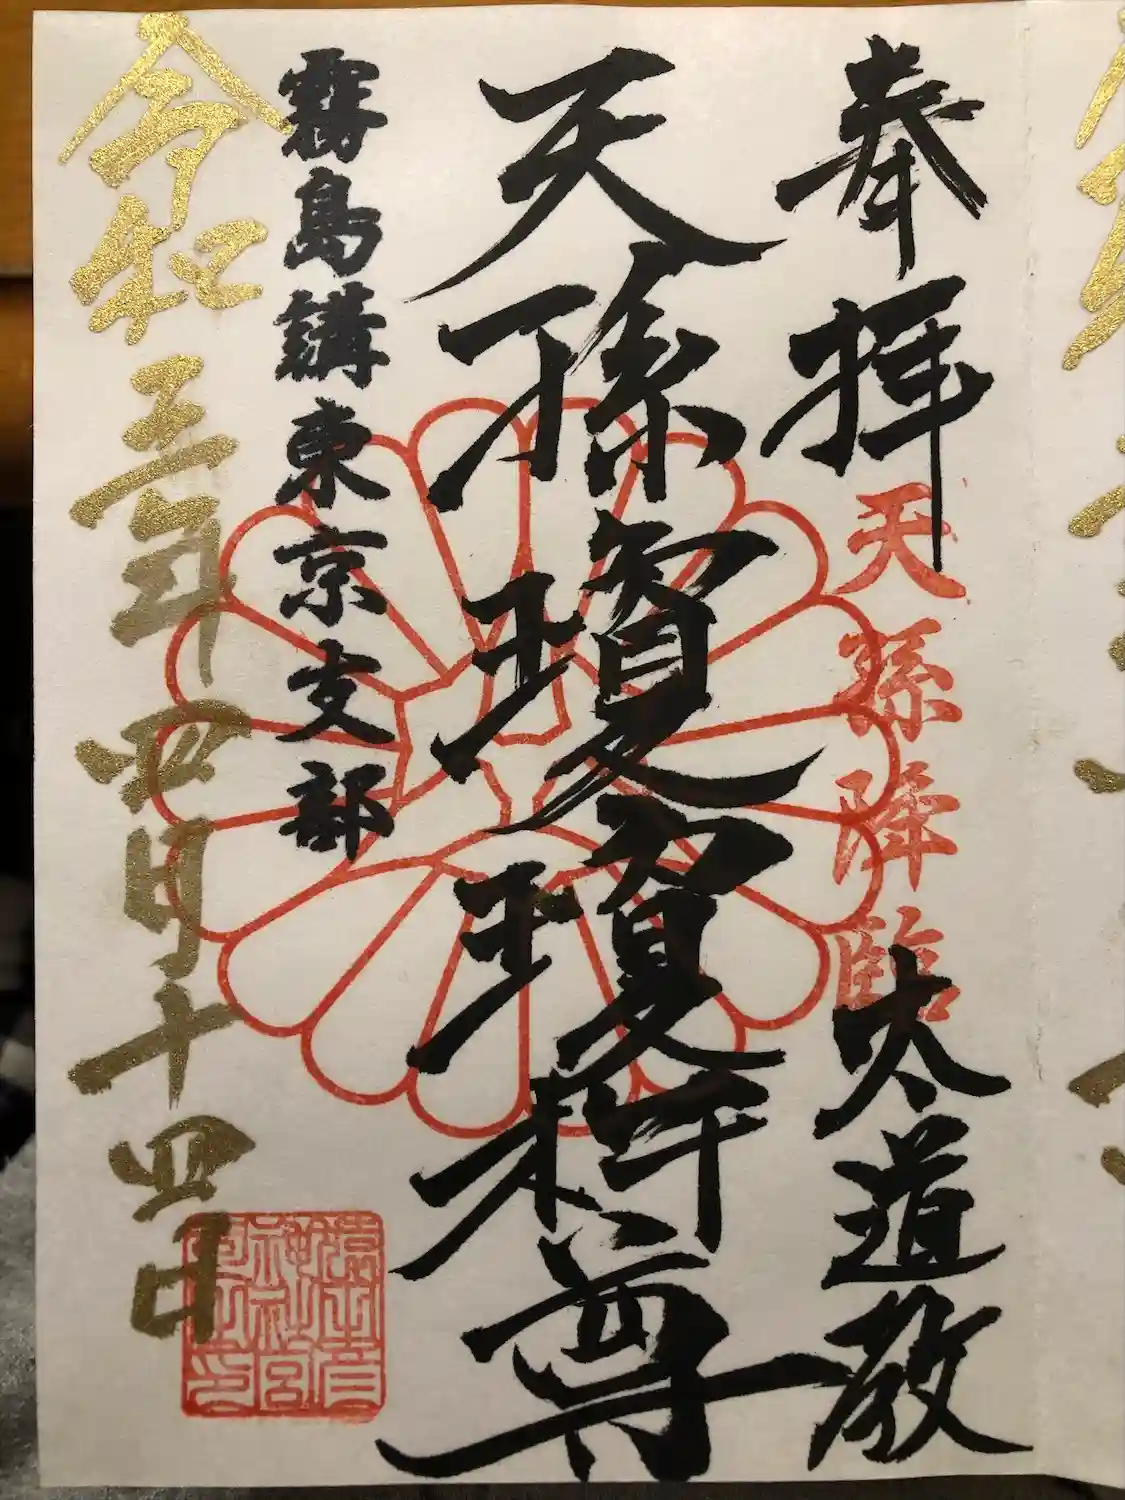 奉拝
天孫降臨
太道教
天孫瓊瓊杵尊
霧島講東京支部
令和五年四月十四日